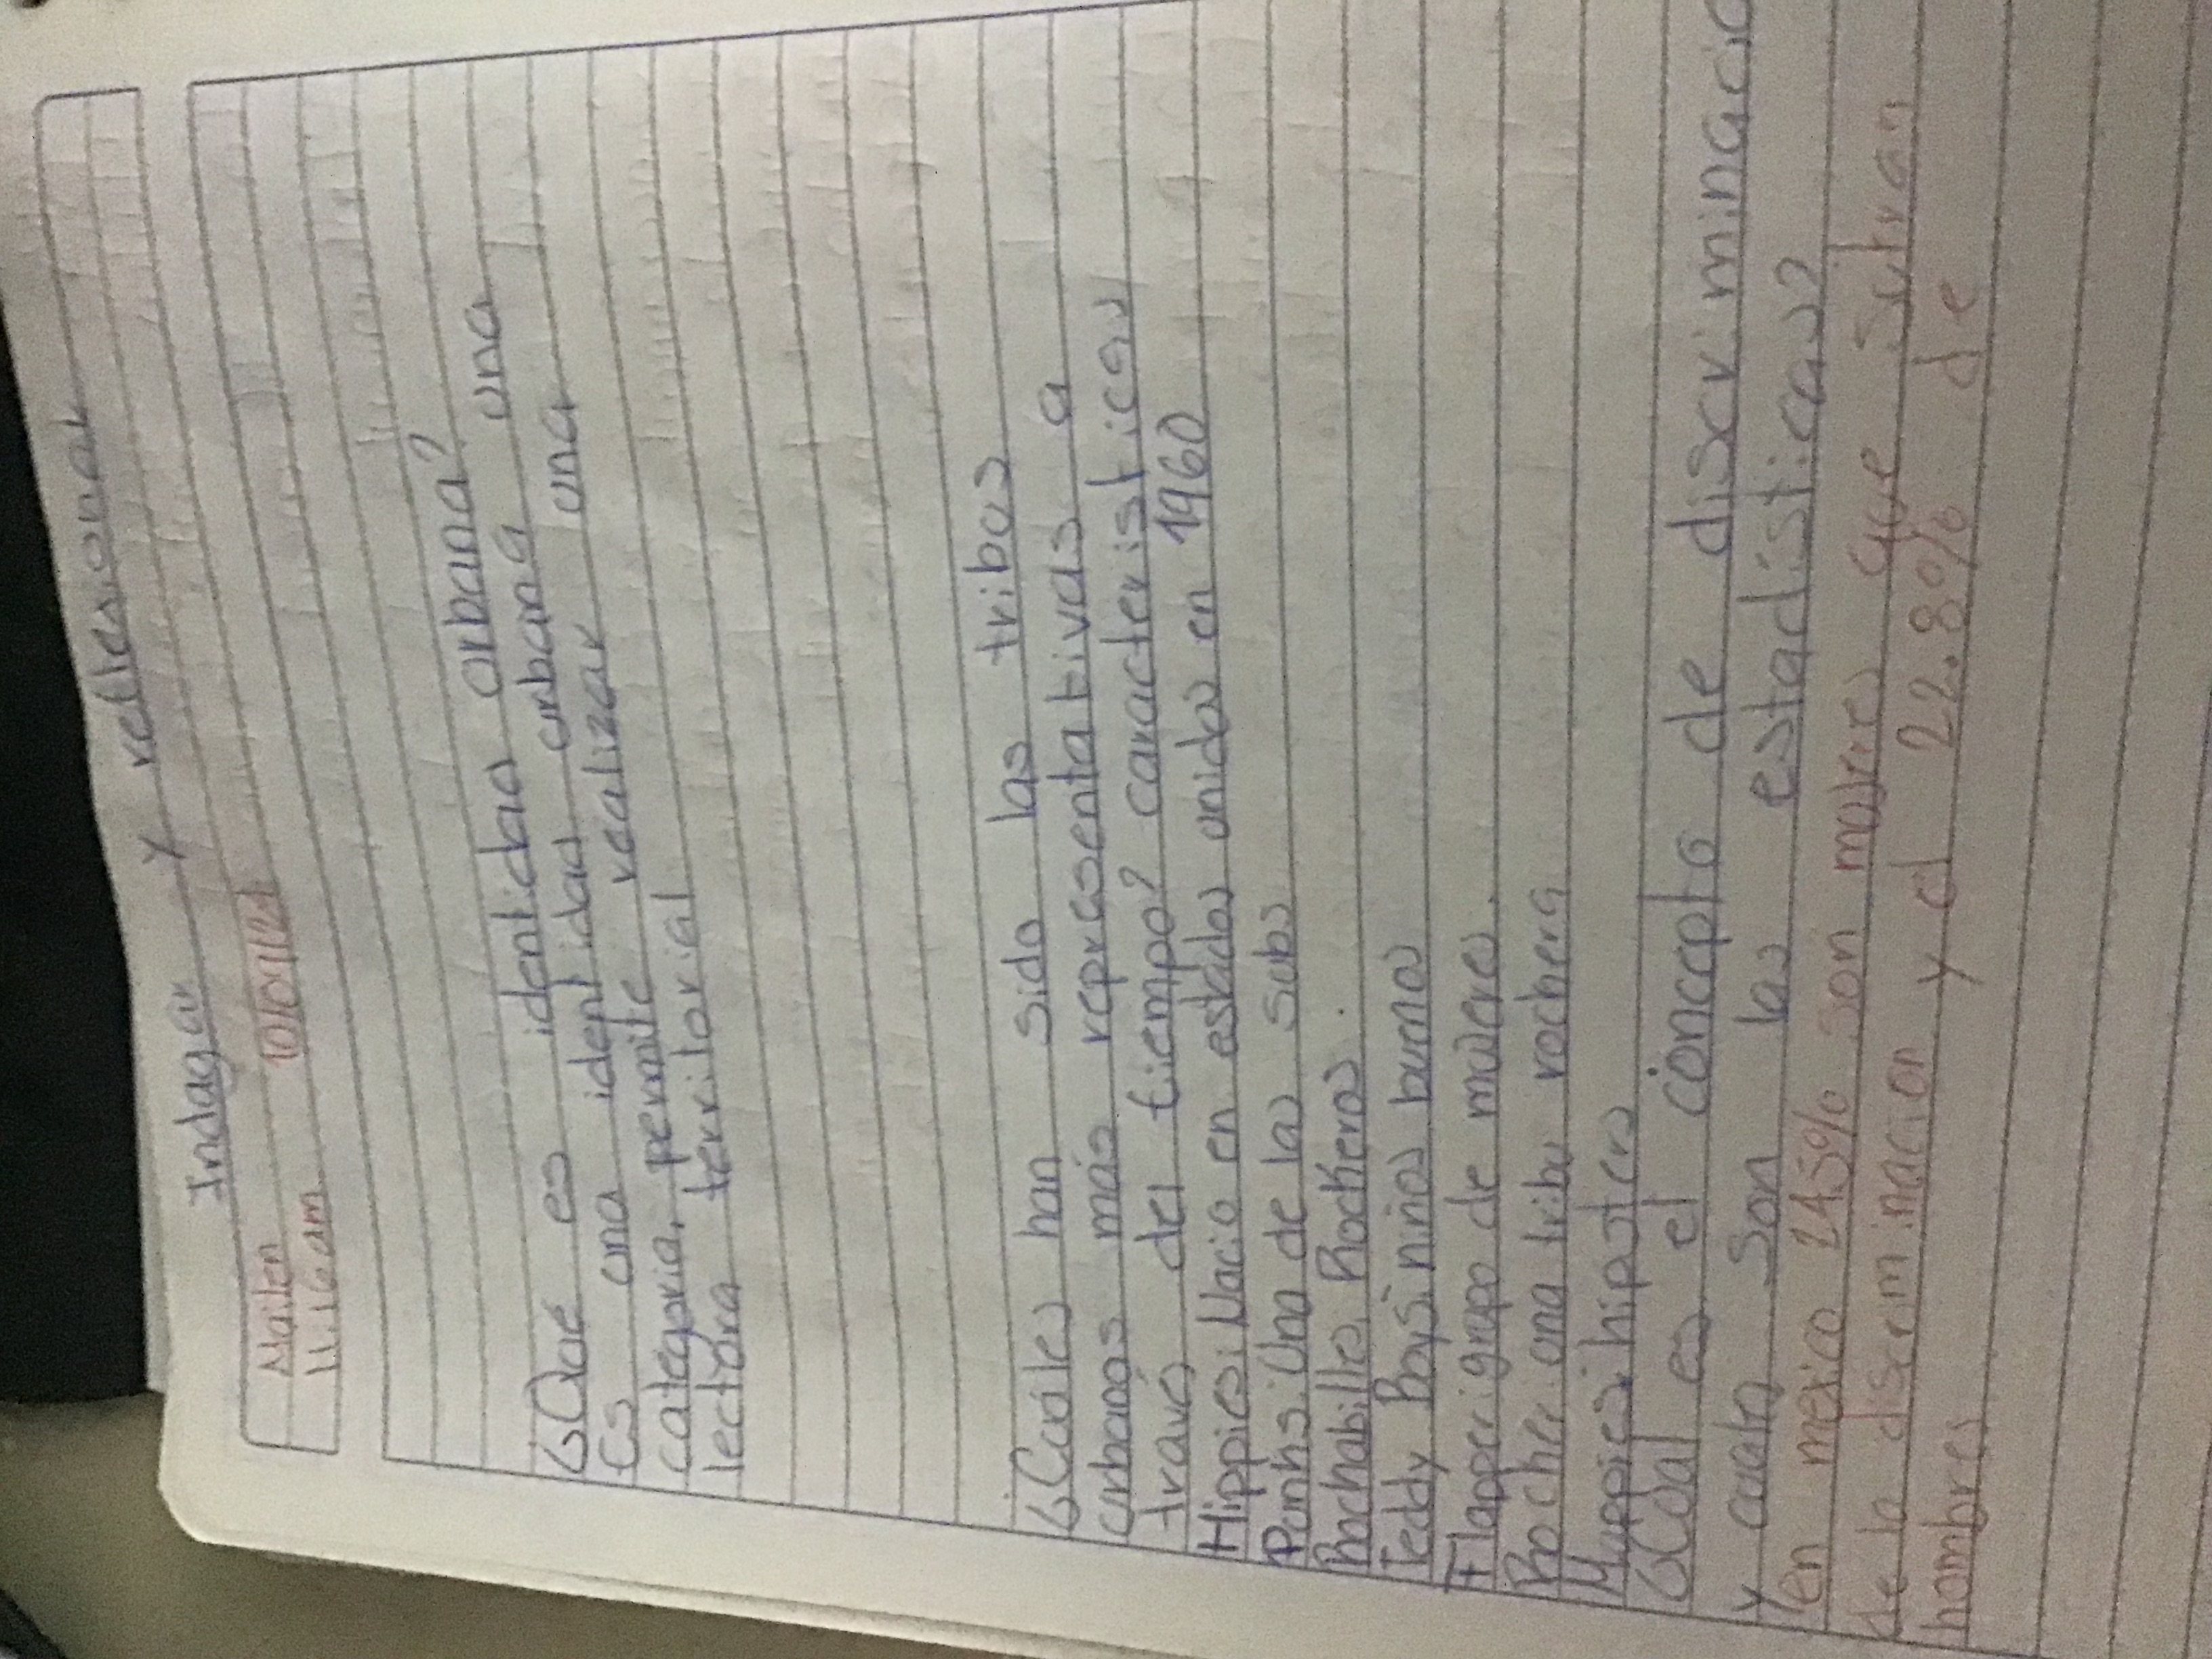 Indagar y reflesionar
Mailen 10/09/21
11:16am
¿Qué es identidad urbana?
Es una identidad urbana una
categoria, permite realizar una
lectora territorial
¿Cuáles han sido las tribos
urbanas más representativas a
través del tiempo? caracteristicas
Hippies: Nacio en estados unidos en 1960
Punks: Una de las subs
Rockabilles: Rockeros.
Teddy Boys: niños buenos
Flapper: grupo de mujeres.
Rocker: una tribu rockera
Mappies: hipsters
¿Cual es el concepto de discriminacio
y cuales son las estadísticas?
Yen mexico 24.5% son mujeres que sufran
de la discriminacion y el 22.8% de
hombres